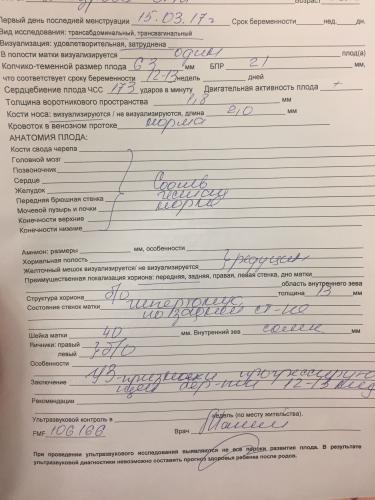 Первый день последней менструации 15.03.17г Срок беременности нед. дн.
Вид исследования: трансабдоминальный, трансвагинальный
Визуализация: удовлетворительная, затруднена
В полости матки визуализируется один плод(а)
Копчико-теменной размер плода 63 мм БПР 21 мм,
что соответствует сроку беременности 12-13 недель дней
Сердцебиение плода ЧСС 173 ударов в минуту Двигательная активность плода +
Толщина воротникового пространства 1,8 мм
Кости носа: визуализируются / не визуализируются, длина 2,0 мм
Кровоток в венозном протоке норма
АНАТОМИЯ ПЛОДА:
Кости свода черепа
Головной мозг
Позвоночник
Сердце
Желудок
Передняя брюшная стенка
Мочевой пузырь и почки
Конечности верхние
Конечности нижние
норма
Амнион: размеры мм, особенности
Хориальная полость
Желточный мешок визуализируется/ не визуализируется
Преимущественная локализация хориона: передняя, задняя, правая, левая стенка, дно матки
область внутреннего зева
Структура хориона б/о толщина 13 мм
Состояние стенок матки гипертонус
по задней ст-ке
Шейка матки 40 мм. Внутренний зев сомкн
Яичники: правый
левый б/о
Особенности
Заключение УЗ-признаки
бер-ти 12-13 нед
Рекомендации
Ультразвуковой контроль в недель (по месту жительства).
FMF 106166 Врач
При проведении ультразвукового исследования выявляются не все пороки развития плода. В результате
ультразвуковой диагностики невозможно составить прогноз здоровья ребенка после родов.